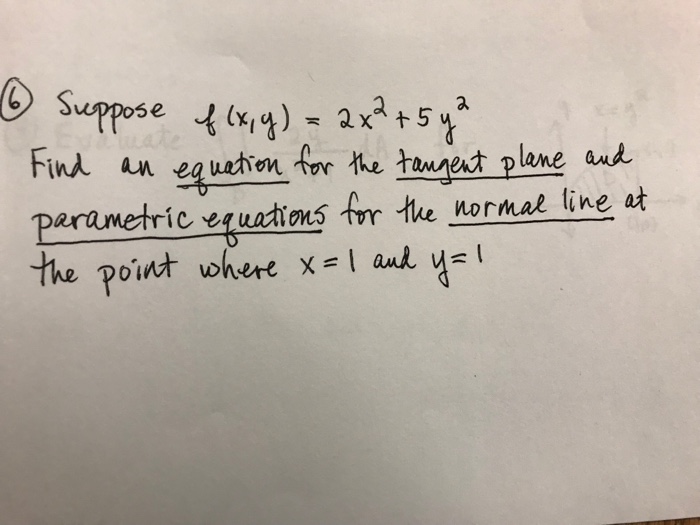 ⑥ Suppose f(x,y) = 2x² + 5y²
Find an equation for the tangent plane and
parametric equations for the normal line at
the point where x = 1 and y = 1